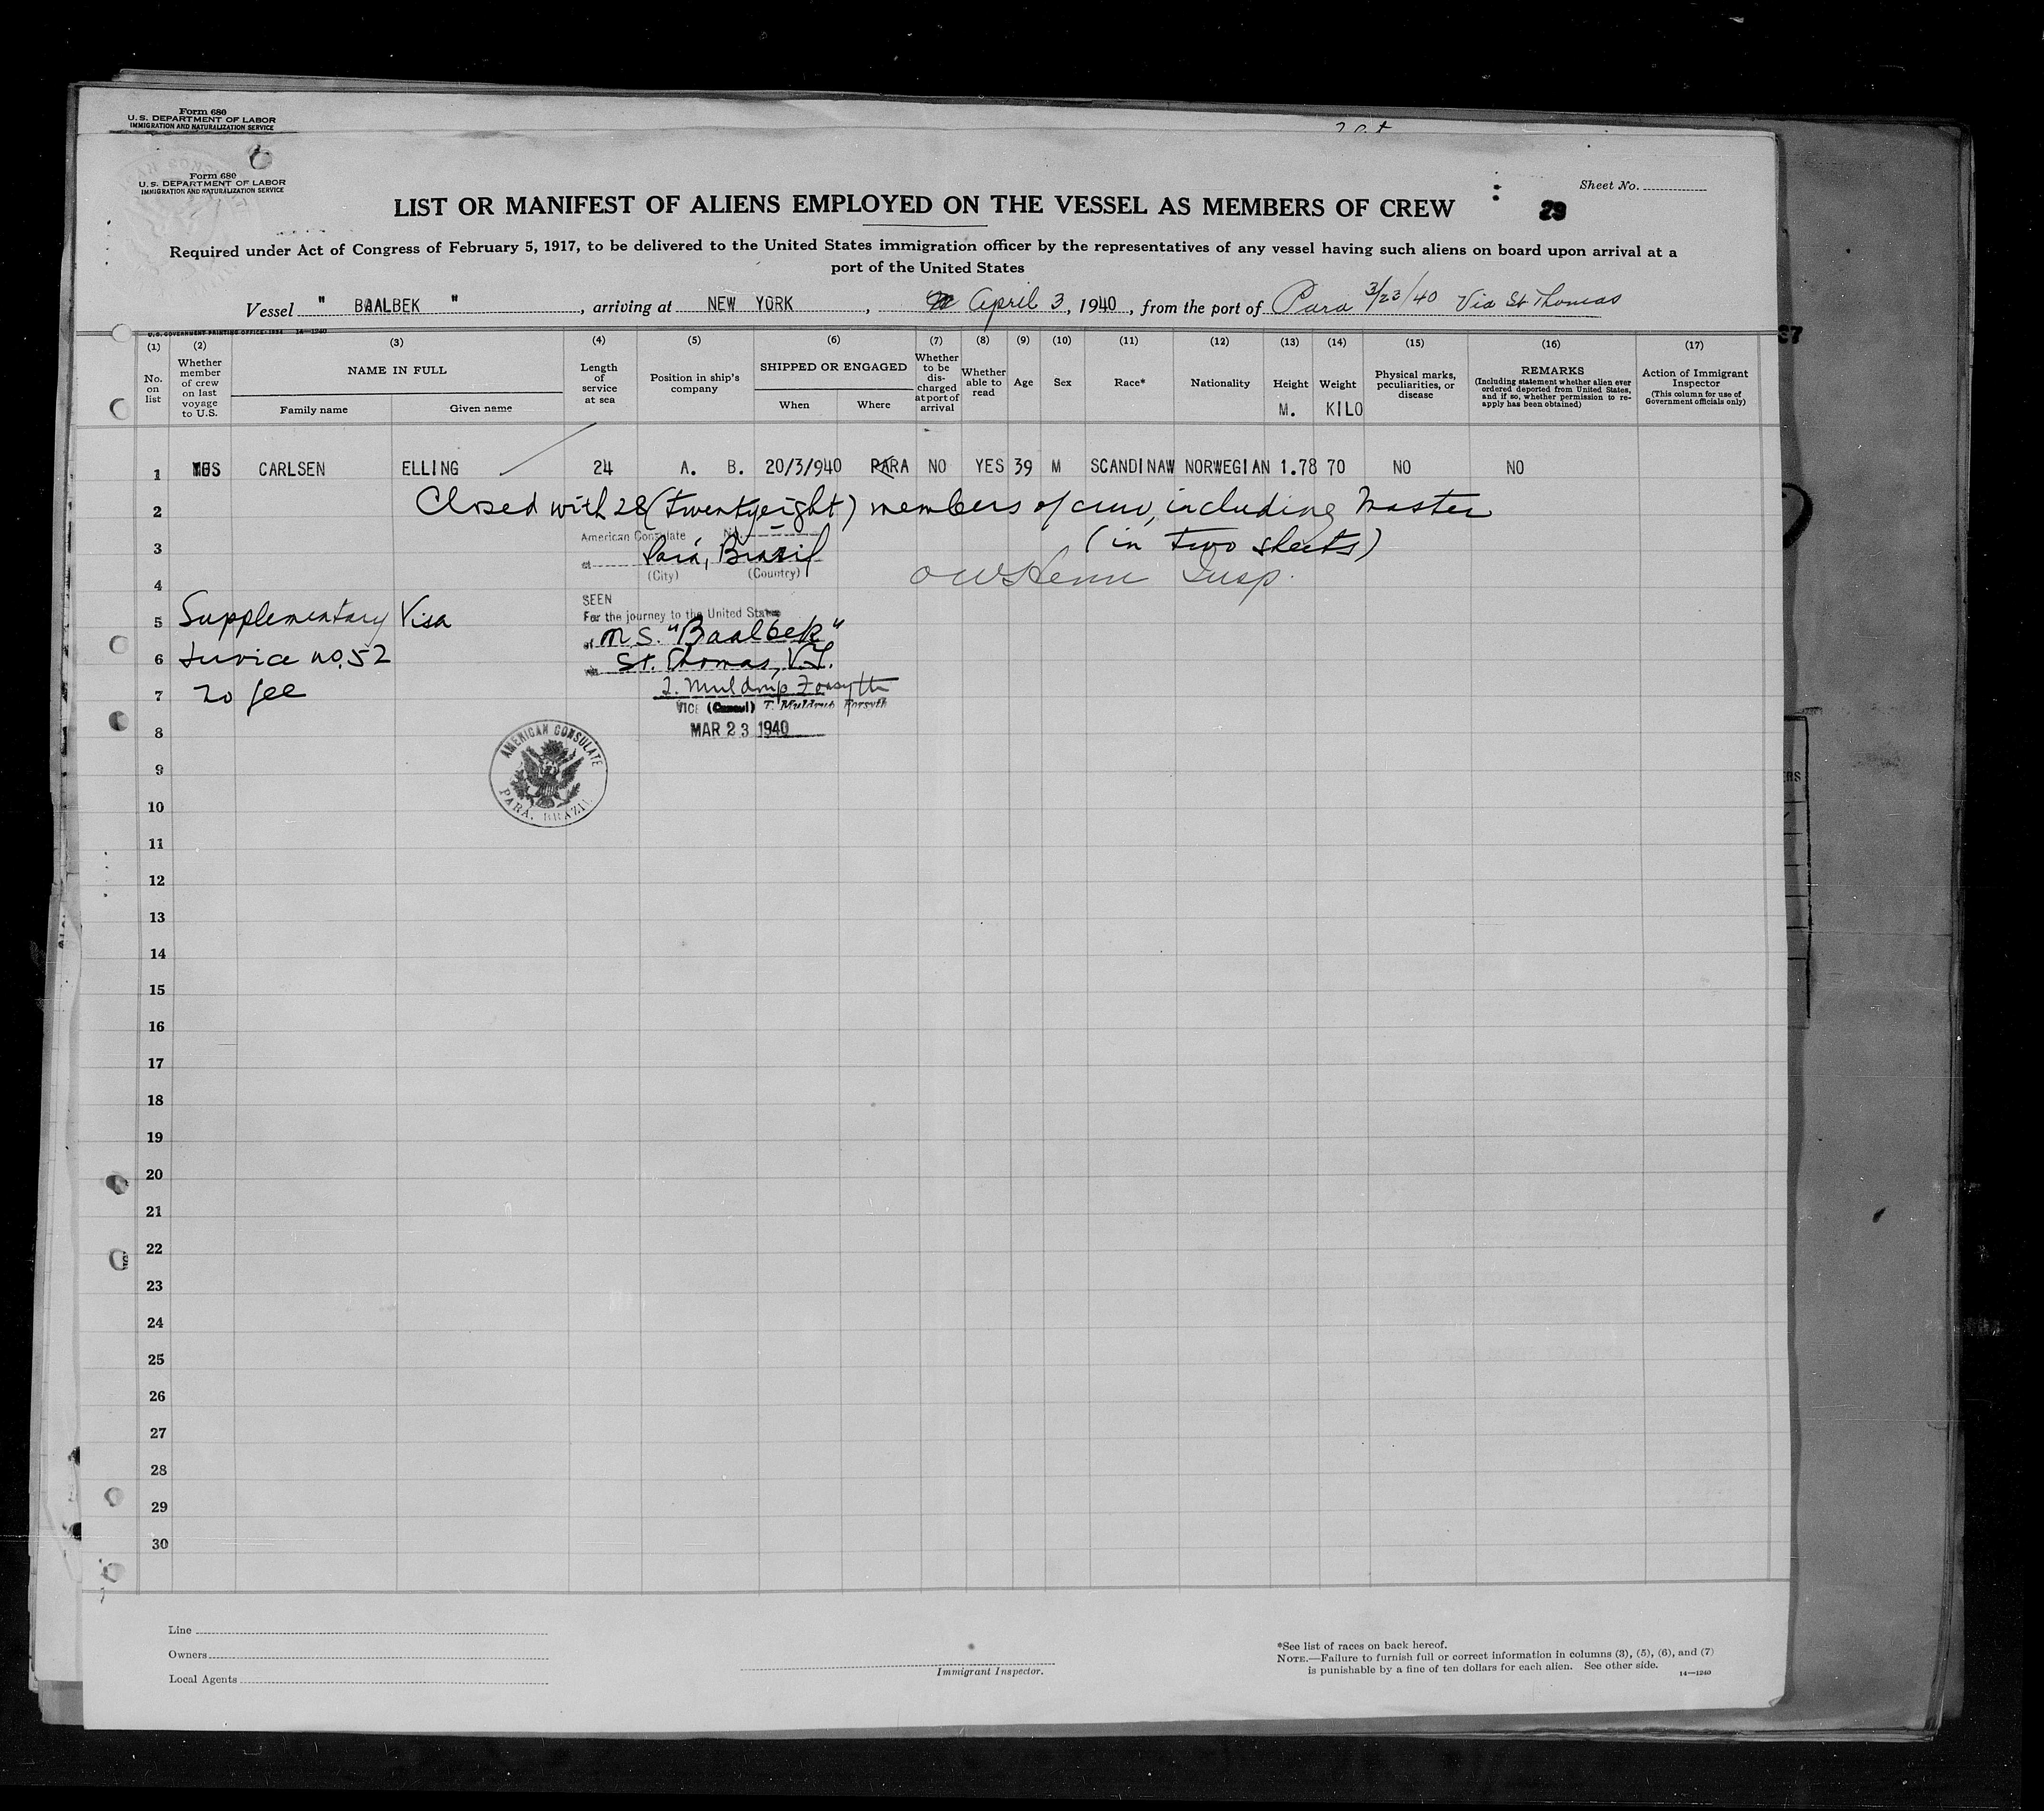 Form 680
U. S. DEPARTMENT OF LABOR
IMMIGRATION AND NATURALIZATION SERVICE
Form 680
U. S. DEPARTMENT OF LABOR
IMMIGRATION AND NATURALIZATION SERVICE
Sheet No.
LIST OR MANIFEST OF ALIENS EMPLOYED ON THE VESSEL AS MEMBERS OF CREW
29
Required under Act of Congress of February 5, 1917, to be delivered to the United States immigration officer by the representatives of any vessel having such aliens on board upon arrival at a
port of the United States
Vessel " BAALBEK ", arriving at NEW YORK, April 3, 1940, from the port of Para 3/23/40 Via St Thomas
U. S. GOVERNMENT PRINTING OFFICE: 1934 14—1240
(1) (2) (3) (4) (5) (6) (7) (8) (9) (10) (11) (12) (13) (14) (15) (16) (17)
No. on list
Whether member of crew on last voyage to U.S.
NAME IN FULL
Family name
Given name
Length of service at sea
Position in ship's company
SHIPPED OR ENGAGED
When
Where
Whether to be discharged at port of arrival
Whether able to read
Age
Sex
Race*
Nationality
Height
M.
Weight
KILO
Physical marks, peculiarities, or disease
REMARKS
(Including statement whether alien ever ordered deported from United States, and if so, whether permission to reapply has been obtained)
Action of Immigrant Inspector
(This column for use of Government officials only)
1 CARLSEN ELLING 24 A. B. 20/3/940 PARA NO YES 39 M SCANDINAW NORWEGIAN 1.78 70 NO NO
2 Closed with 28 (twentyeight) members of crew, including Master
(in two sheets)
3
American Consulate No.
at Pará, Brazil
(City) (Country)
4
Insp.
SEEN
For the journey to the United States
5 Supplementary Visa
of M S. "Baalbek"
6 Service no. 52
via St. Thomas, V.I.
7 No fee
T. Muldrup Forsyth
VICE (Consul) T. Muldrup Forsyth
MAR 23 1940
8
AMERICAN CONSULATE
PARA, BRAZIL
9
10
11
12
13
14
15
16
17
18
19
20
21
22
23
24
25
26
27
28
29
30
Line
Owners
Local Agents
Immigrant Inspector.
*See list of races on back hereof.
NOTE.—Failure to furnish full or correct information in columns (3), (5), (6), and (7)
is punishable by a fine of ten dollars for each alien. See other side.
14—1240